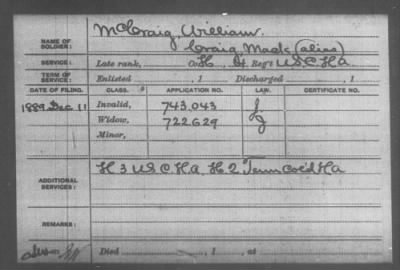 NAME OF SOLDIER: McCraig, William.
Craig, Mack (alias)
SERVICE: Late rank, Co. H, Reg't U.S.C.H.A.
TERM OF SERVICE: Enlisted , 1 Discharged , 1
DATE OF FILING. CLASS. APPLICATION NO. LAW. CERTIFICATE NO.
1889 Dec 11 Invalid, 743.043
Widow, 722629
Minor,
ADDITIONAL SERVICES: H 3 U.S.C.H.A. H 2 Tenn Col'd H A
REMARKS:
Died , 1 , at